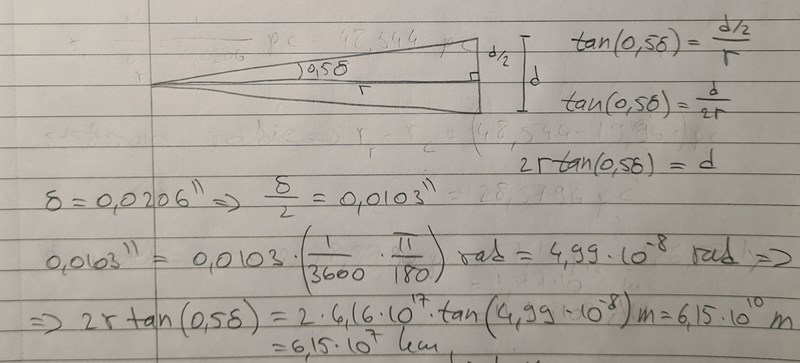 tan(0,5δ) = d/2 / r
d/2
0,5δ
r
d
tan(0,5δ) = d / 2r
2r tan(0,5δ) = d
δ = 0,0206'' => δ/2 = 0,0103''
0,0103'' = 0,0103 · (1/3600 · π/180) rad = 4,99 · 10^-8 rad =>
=> 2r tan(0,5δ) = 2 · 6,16 · 10^17 · tan(4,99 · 10^-8) m = 6,15 · 10^10 m
= 6,15 · 10^7 km